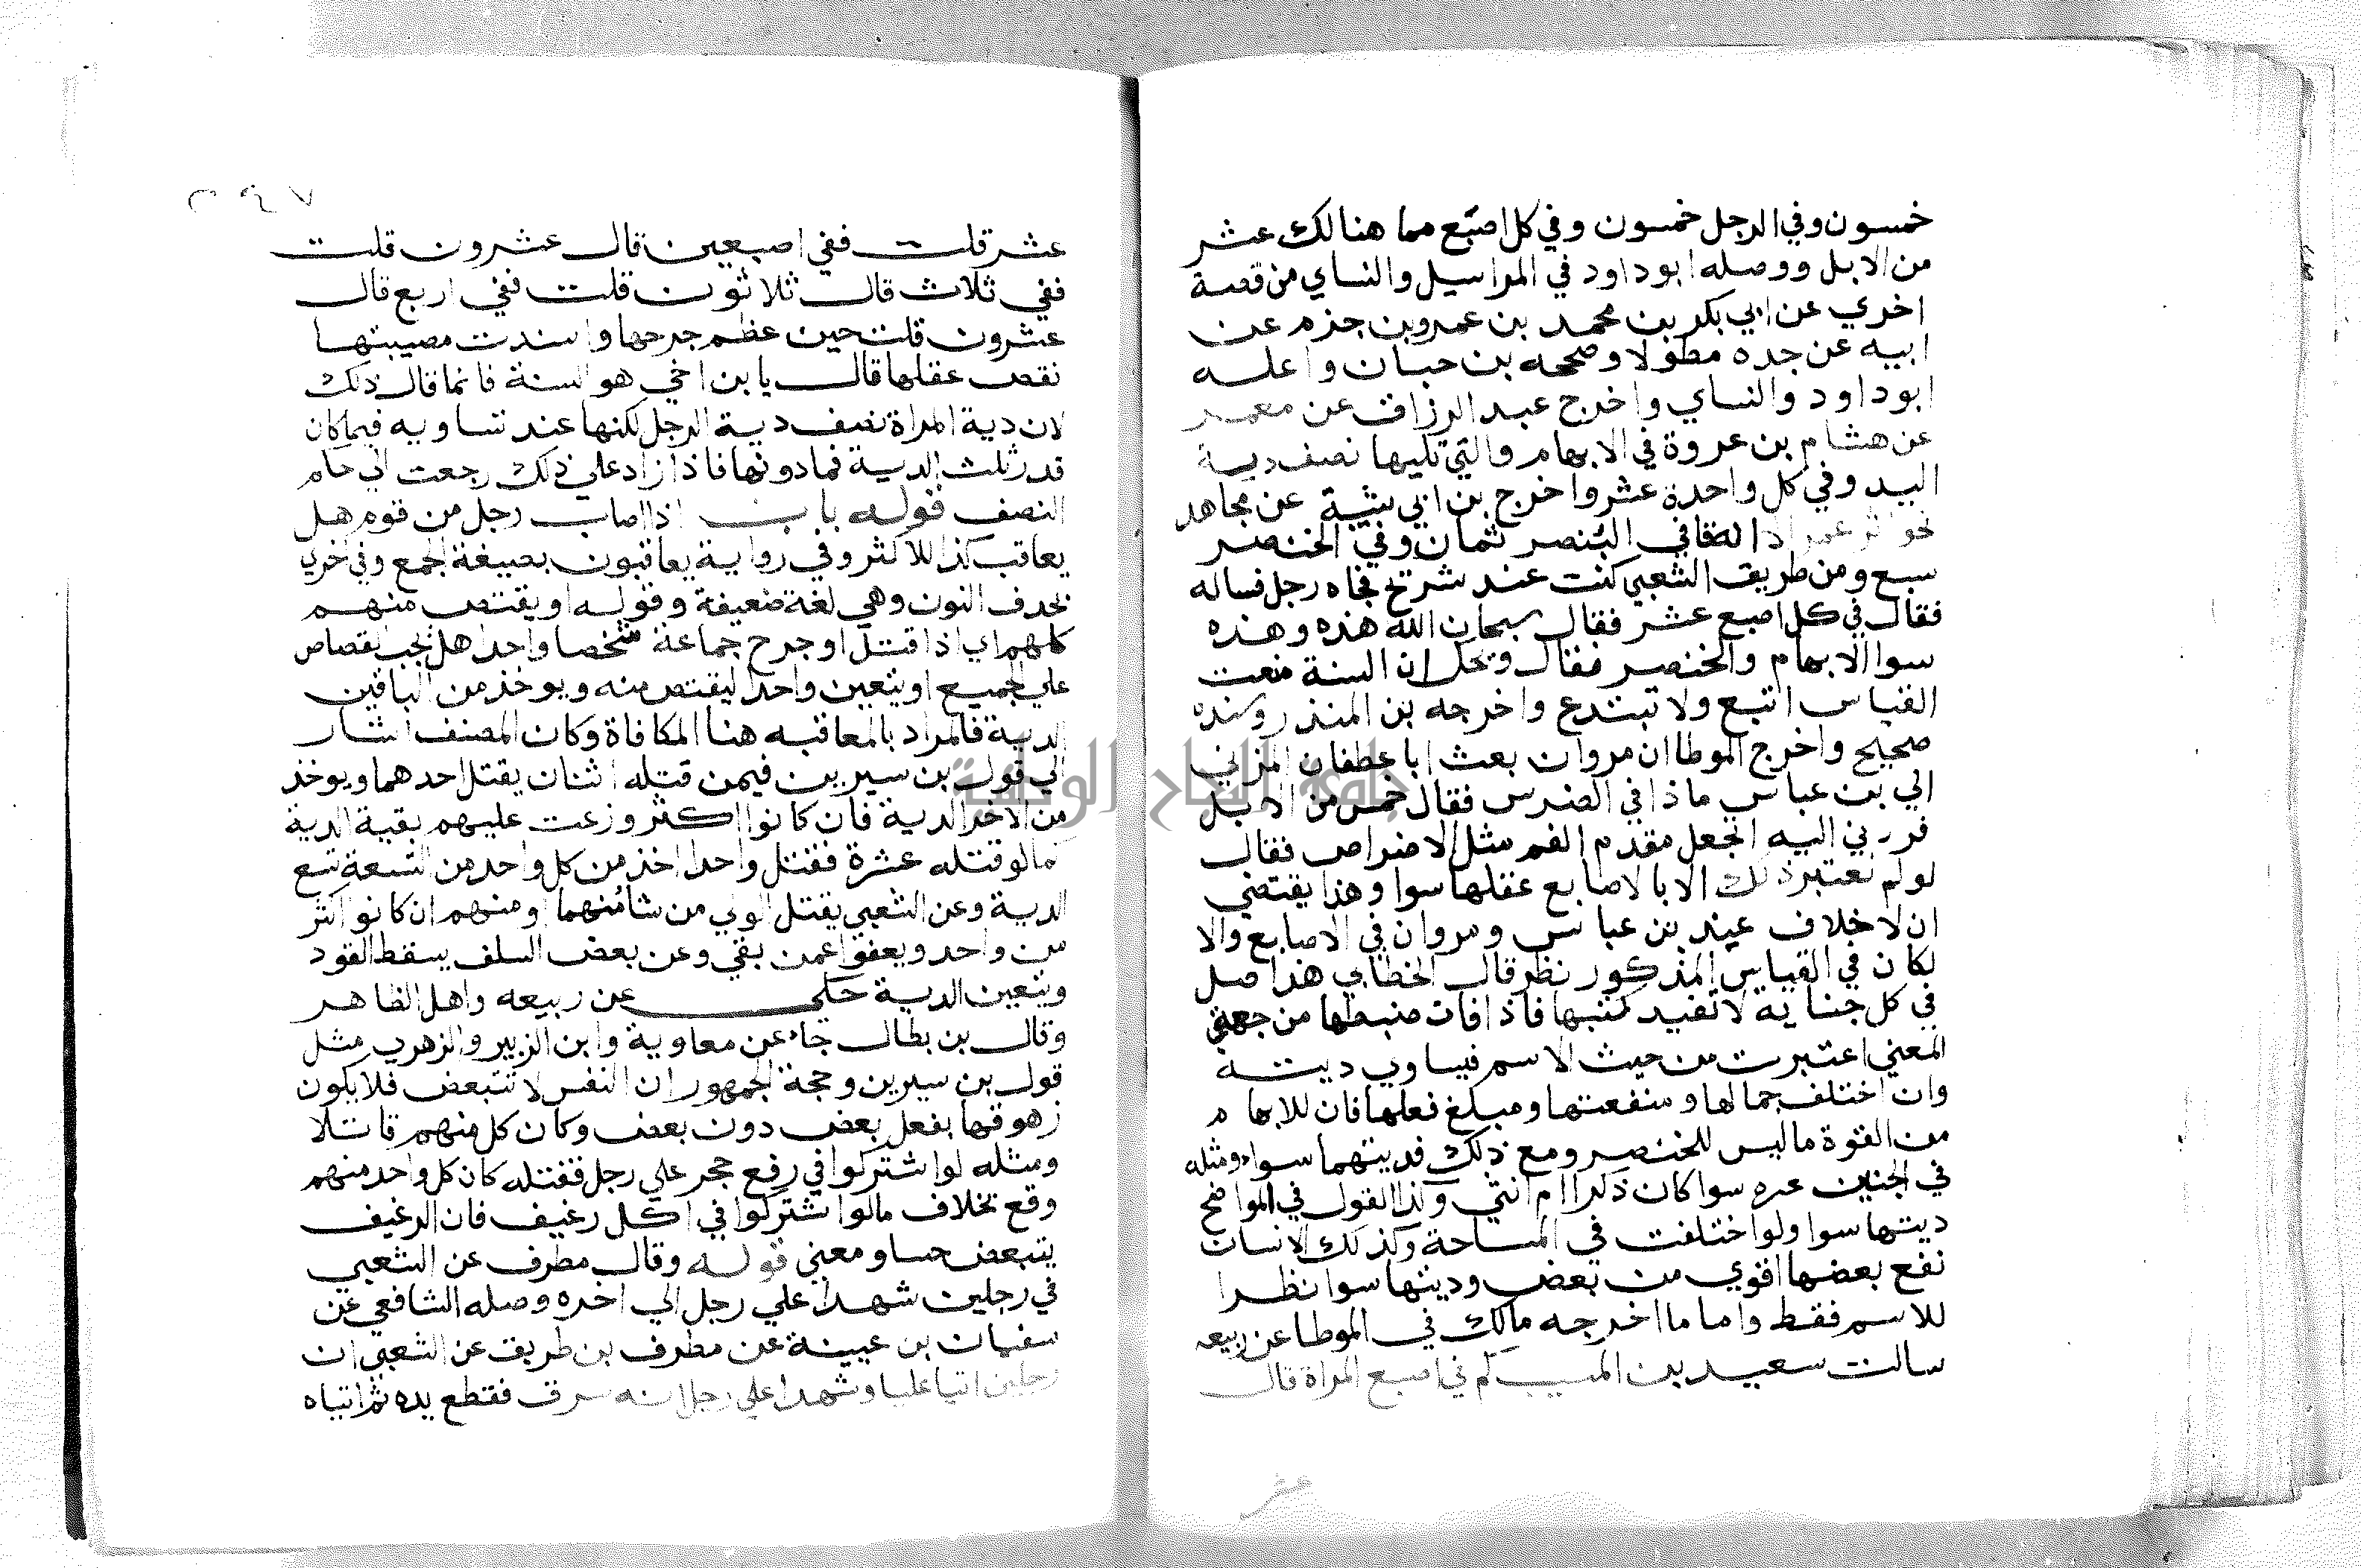 خمسون وفي الرجل خمسون وفي كل اصبع مما هنالك عشر
من الابل ووصله ابو داود في المراسيل والنساي من قصة
اخري عن ابي بكر بن محمد بن عمرو بن حزم عن
ابيه عن جده مطولا وصححه بن حبان واعله
ابو داود والنساي واخرج عبد الرزاق عن معمر
عن هشام بن عروة في الابهام والتي تليها نصف دية
اليد وفي كل واحدة عشر واخرج بن ابي شيبة عن مجاهد
نحو اثر عمر الا انه قال في البنصر ثمان وفي الخنصر
سبع ومن طريق الشعبي كنت عند شريح فجاه رجل فساله
فقال في كل اصبع عشر فقال سبحان الله هذه وهذه
سوا الابهام والخنصر فقال ويحك ان السنة منعت
القياس اتبع ولا تبتدع واخرجه بن المنذر وسنده
صحيح واخرج الموطا ان مروان بعث ابا غطفان المزني
الي بن عباس ماذا في الضرس فقال خمس من الابل
فردني اليه اتجعل مقدم الفم مثل الاضراس فقال
لو لم تعتبر ذلك الا بالاصابع عقلها سوا وهذا يقتضي
ان لا خلاف عند بن عباس ومروان في الاصابع والا
لكان في القياس المذكور نظر قال الخطابي هذا اصل
في كل جناية لا تفيد كميتها فاذا فات ضبطها من جهة
المعني اعتبرت من حيث الاسم فيساوي ديته
وان اختلف جمالها ومنفعتها ومبلغ فعلها فان للابهام
من القوة ما ليس للخنصر ومع ذلك فديتهما سواء ومثله
في الجنين غره سوا كان ذكرا ام انثي وكذا القول في المواضح
ديتها سوا ولو اختلفت في المساحة وكذلك الاسنان
نفع بعضها اقوي من بعض وديتها سوا نظرا
للاسم فقط واما ما اخرجه مالك في الموطا عن ربيعه
سالت سعيد بن المسيب كم في اصبع المراة قال
عشر
٢٩٧
عشر قلت ففي اصبعين قال عشرون قلت
ففي ثلاث قال ثلاثون قلت ففي اربع قال
عشرون قلت حين عظم جرحها واشتدت مصيبتها
نقص عقلها قال يا بن اخي هو السنة فانما قال ذلك
لان دية المراة نصف دية الرجل لكنها عند تساويه فيما كان
قدر ثلث الدية فما دونها فاذا زاد علي ذلك رجعت الي حكم
النصف قوله باب اذا اصاب رجل من قوم هل
يعاقب كذا للاكثر وفي رواية يعاقبون بصيغة الجمع وفي اخري
بحذف النون وهي لغة ضعيفة وقوله او يقتص منهم
كلهم اي اذا قتل او جرح جماعة شخصا واحدا هل يجب القصاص
علي الجميع او يتعين واحدا ليقتص منه ويوخذ من الباقين
الدية فالمراد بالمعاقبه هنا المكافاة وكان المصنف اشار
الي قول بن سيرين فيمن قتله اثنان يقتل احدهما ويوخذ
من الاخر الدية فان كانوا اكثر وزعت عليهم بقية الدية
كما لو قتله عشرة فقتل واحدا اخذ من كل واحد من التسعة تسع
الدية وعن الشعبي يقتل الولي من شا منهما او منهم ان كانوا اكثر
من واحد ويعفوا عمن بقي وعن بعض السلف يسقط القود
ويتعين الدية حكي عن ربيعه واهل الظاهر
وقال بن بطال جاء عن معاوية وابن الزبير والزهري مثل
قول بن سيرين وحجة الجمهور ان النفس لا تتبعض فلا يكون
زهوقها بفعل بعض دون بعض وكان كل منهم قاتلا
ومثله لو اشتركوا في رفع حجر علي رجل فقتله كان كل واحد منهم
وقع بخلاف مالوا اشتركوا في اكل رغيف فان الرغيف
يتبعض حسا ومعني قوله وقال مطرف عن الشعبي
في رجلين شهدا علي رجل الي اخره وصله الشافعي عن
سفيان بن عيينة عن مطرف بن طريف عن الشعبي ان
رجلين اتيا عليا وشهدا علي رجل انه سرق فقطع يده ثم اتياه
جامعة النجاح الوطنية